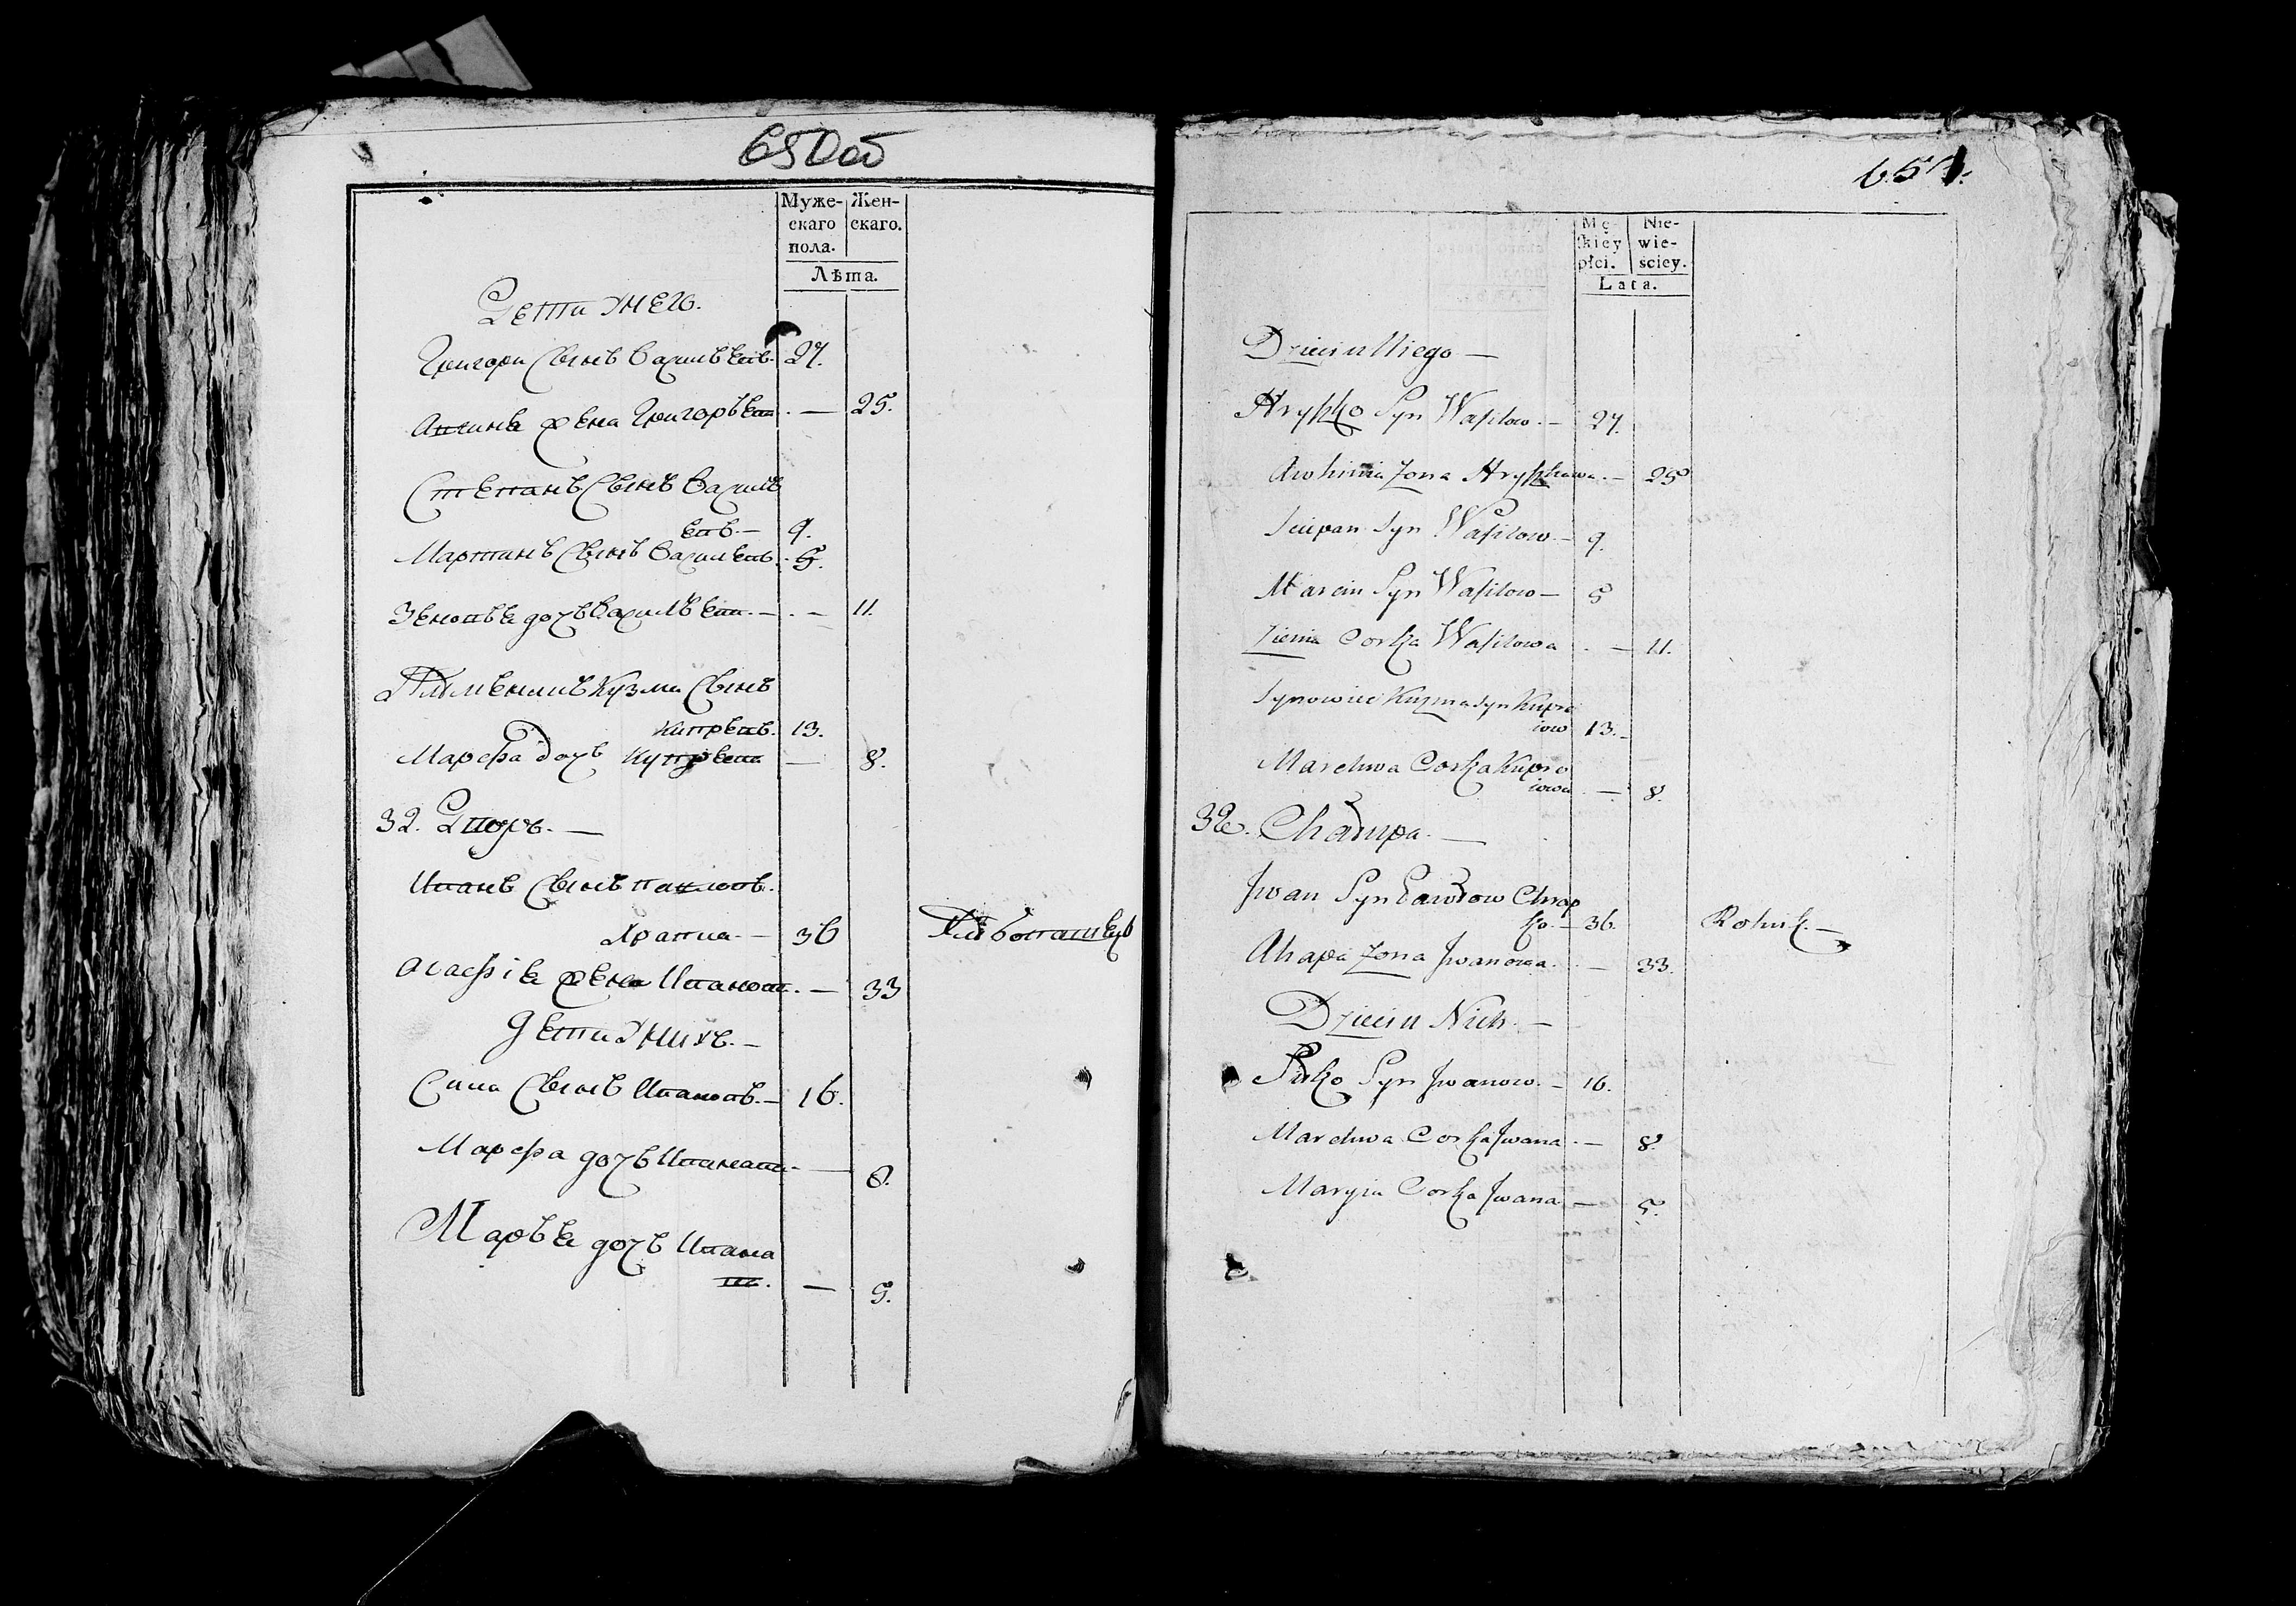 650об
Муже- Жен-
скаго скаго.
пола.
Лѣта.
Дети унего.
Григори Сынъ Василѣевъ. 27.
жена Григорѣева . — 25.
Степанъ Сынъ Василѣ
евъ. — 9.
Мартинъ Сынъ Василевъ. 5.
Зеновѣя дочъ Василѣева. — . — 11.
Племеникъ Кузма Сынъ
Купреевъ. 13.
Марефа дочъ Купрѣева — 8.
32. Дворъ. —
Иванъ Сынъ Павловъ.
Храпка — 36 Хлѣбопашецъ
Агафія жена Иванова. — 33
Дети уних. —
Сила Сынъ Ивановъ. — 16.
Марефа дочъ Иванава — 8.
Марѣя дочъ Ивана
ва. — 5.
651.
Mę- Nie-
skiey wie-
płci. ściey.
Lata.
Dzieci u Niego —
Hryszko Syn Wasilow. — 27.
Awhimia Zona Hryszkowa. — 25
Sciepan Syn Wasilow. — 9.
Marcin Syn Wasilow — 5
Zienia Corka Wasilowa . — 11.
Synowiec Kuzma syn Kupre
iow 13. —
Marchwa Corka Kupre
iowa . — 8.
32. Chałupa. —
Jwan Syn Pawłow Chrap
ko. — 36. Rolnik. —
Ahapa Zona Jwanowa. . — 33.
Dzieci u Nich. —
Syn Jwanow. — 16.
Marchwa Corka Jwana . — 8.
Maryia Corka Jwana — 5.